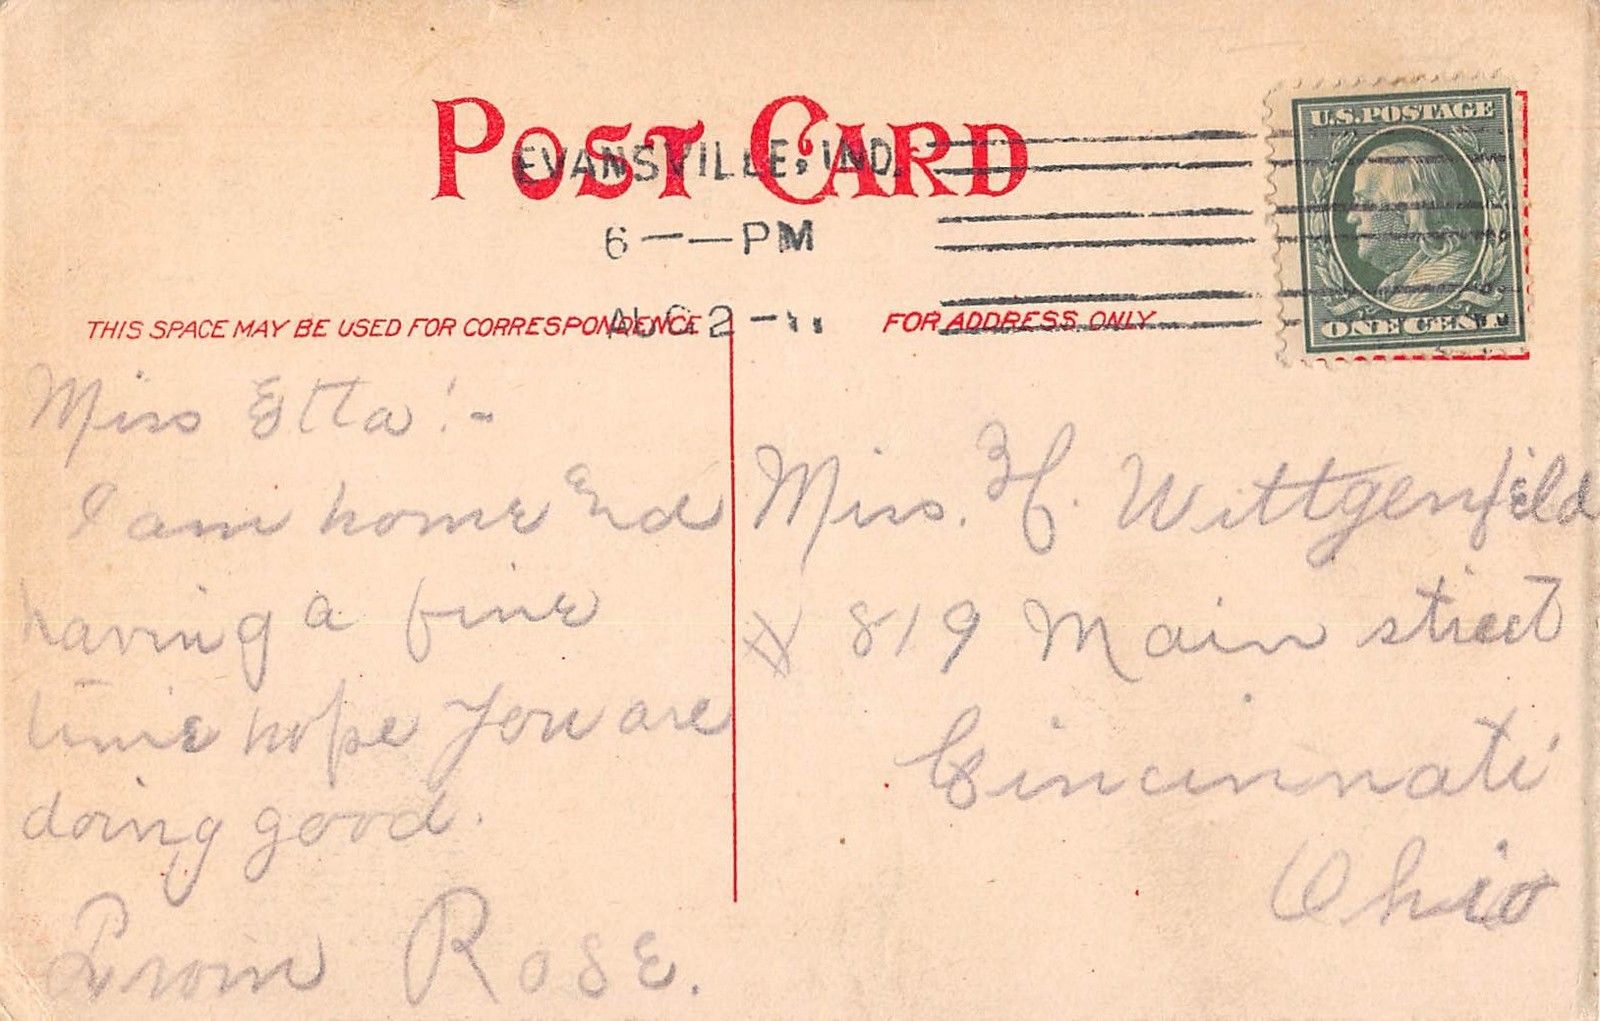 POST CARD
EVANSVILLE, IND.
6 — — PM
AUG 2 —
U.S. POSTAGE
ONE CENT
THIS SPACE MAY BE USED FOR CORRESPONDENCE
FOR ADDRESS ONLY
Miss Etta!-
I am home End
having a fine
time hope you are
doing good.
Irvin Rose.
Miss. Wittgenfeild
# 819 Main street
Cincinnati
Ohio